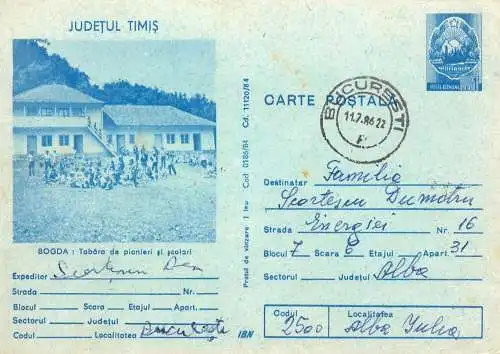 JUDEȚUL TIMIȘ
BOGDA : Tabăra de pionieri și școlari
Expeditor Scorțescu Dan
Strada Nr.
Blocul Scara Etajul Apart.
Sectorul Județul
Codul Localitatea București
IBN
Prețul de vînzare 1 leu Cod 0186/84 Cd. 11120/84
CARTE POȘTALĂ
BUCUREȘTI
11.7.86 22
Destinatar Familia
Scorțescu Dumitru
Strada Energiei Nr. 16
Blocul 7 Scara 6 Etajul Apart. 31
Sectorul Județul Alba
Codul Localitatea
2500 Alba Iulia